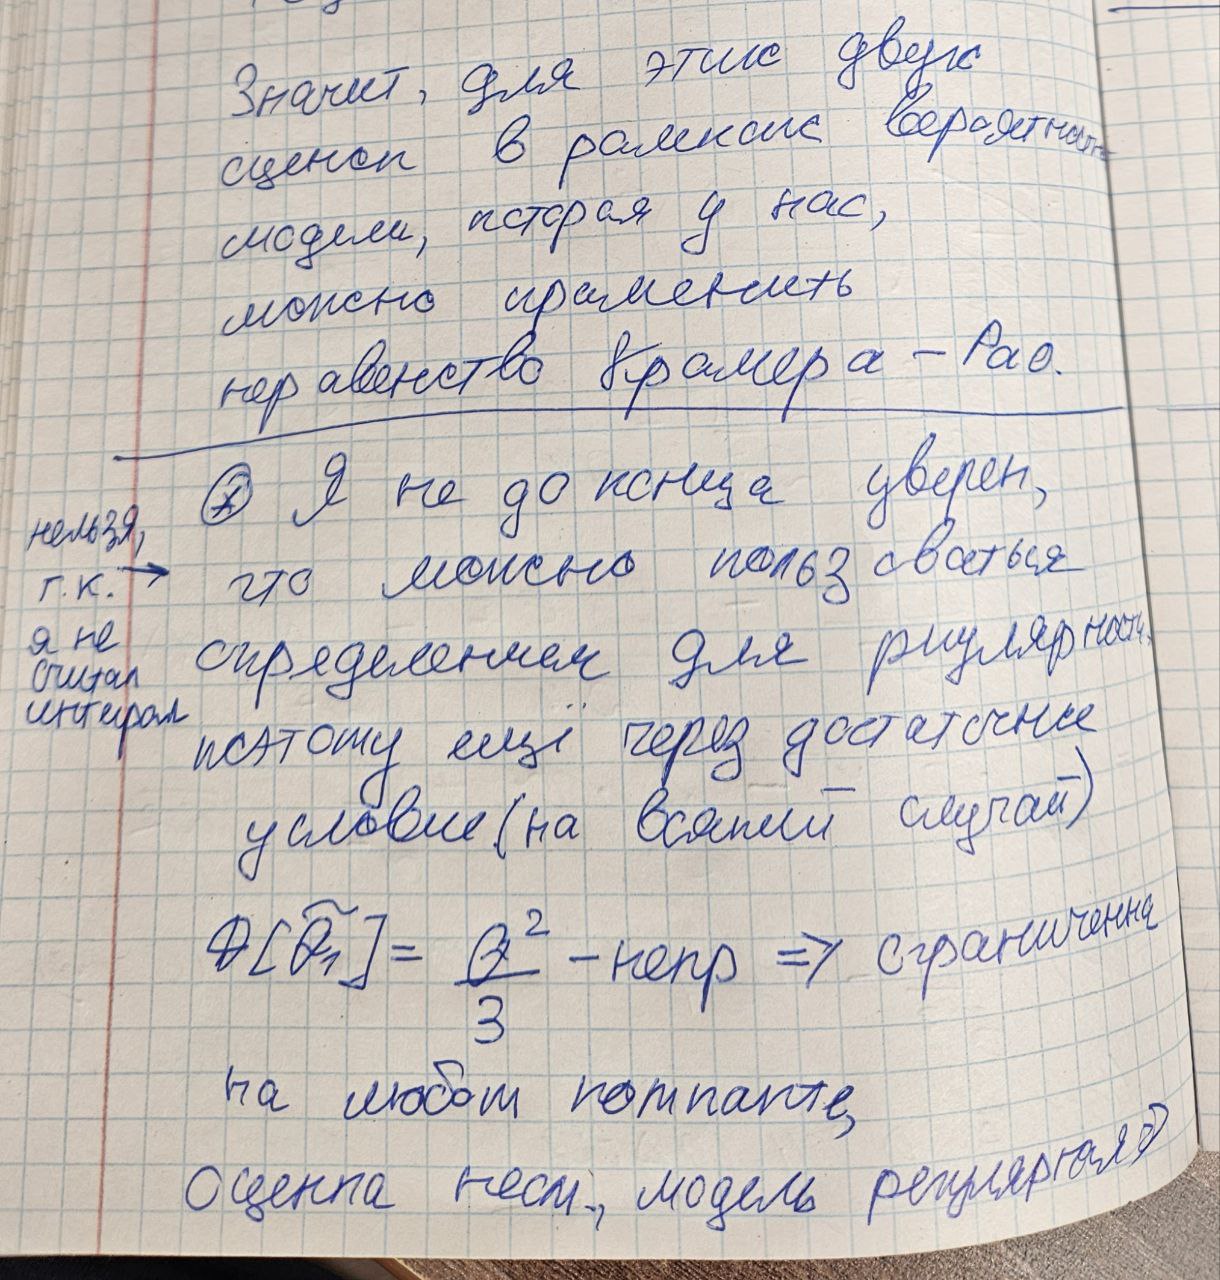 Значит, для этих двух
оценок в рамках вероятностн
модели, которая у нас,
можно применить
неравенство Крамера – Рао.
* Я не до конца уверен,
что можно пользоваться
определением для регулярности,
поэтому ещё через достаточное
условие (на всякий случай)
нельзя,
т.к. →
я не
считал
интеграл
D[θ̃₁] = θ²/3 – непр => ограниченна
на любом компакте,
Оценка несм., модель регулярная